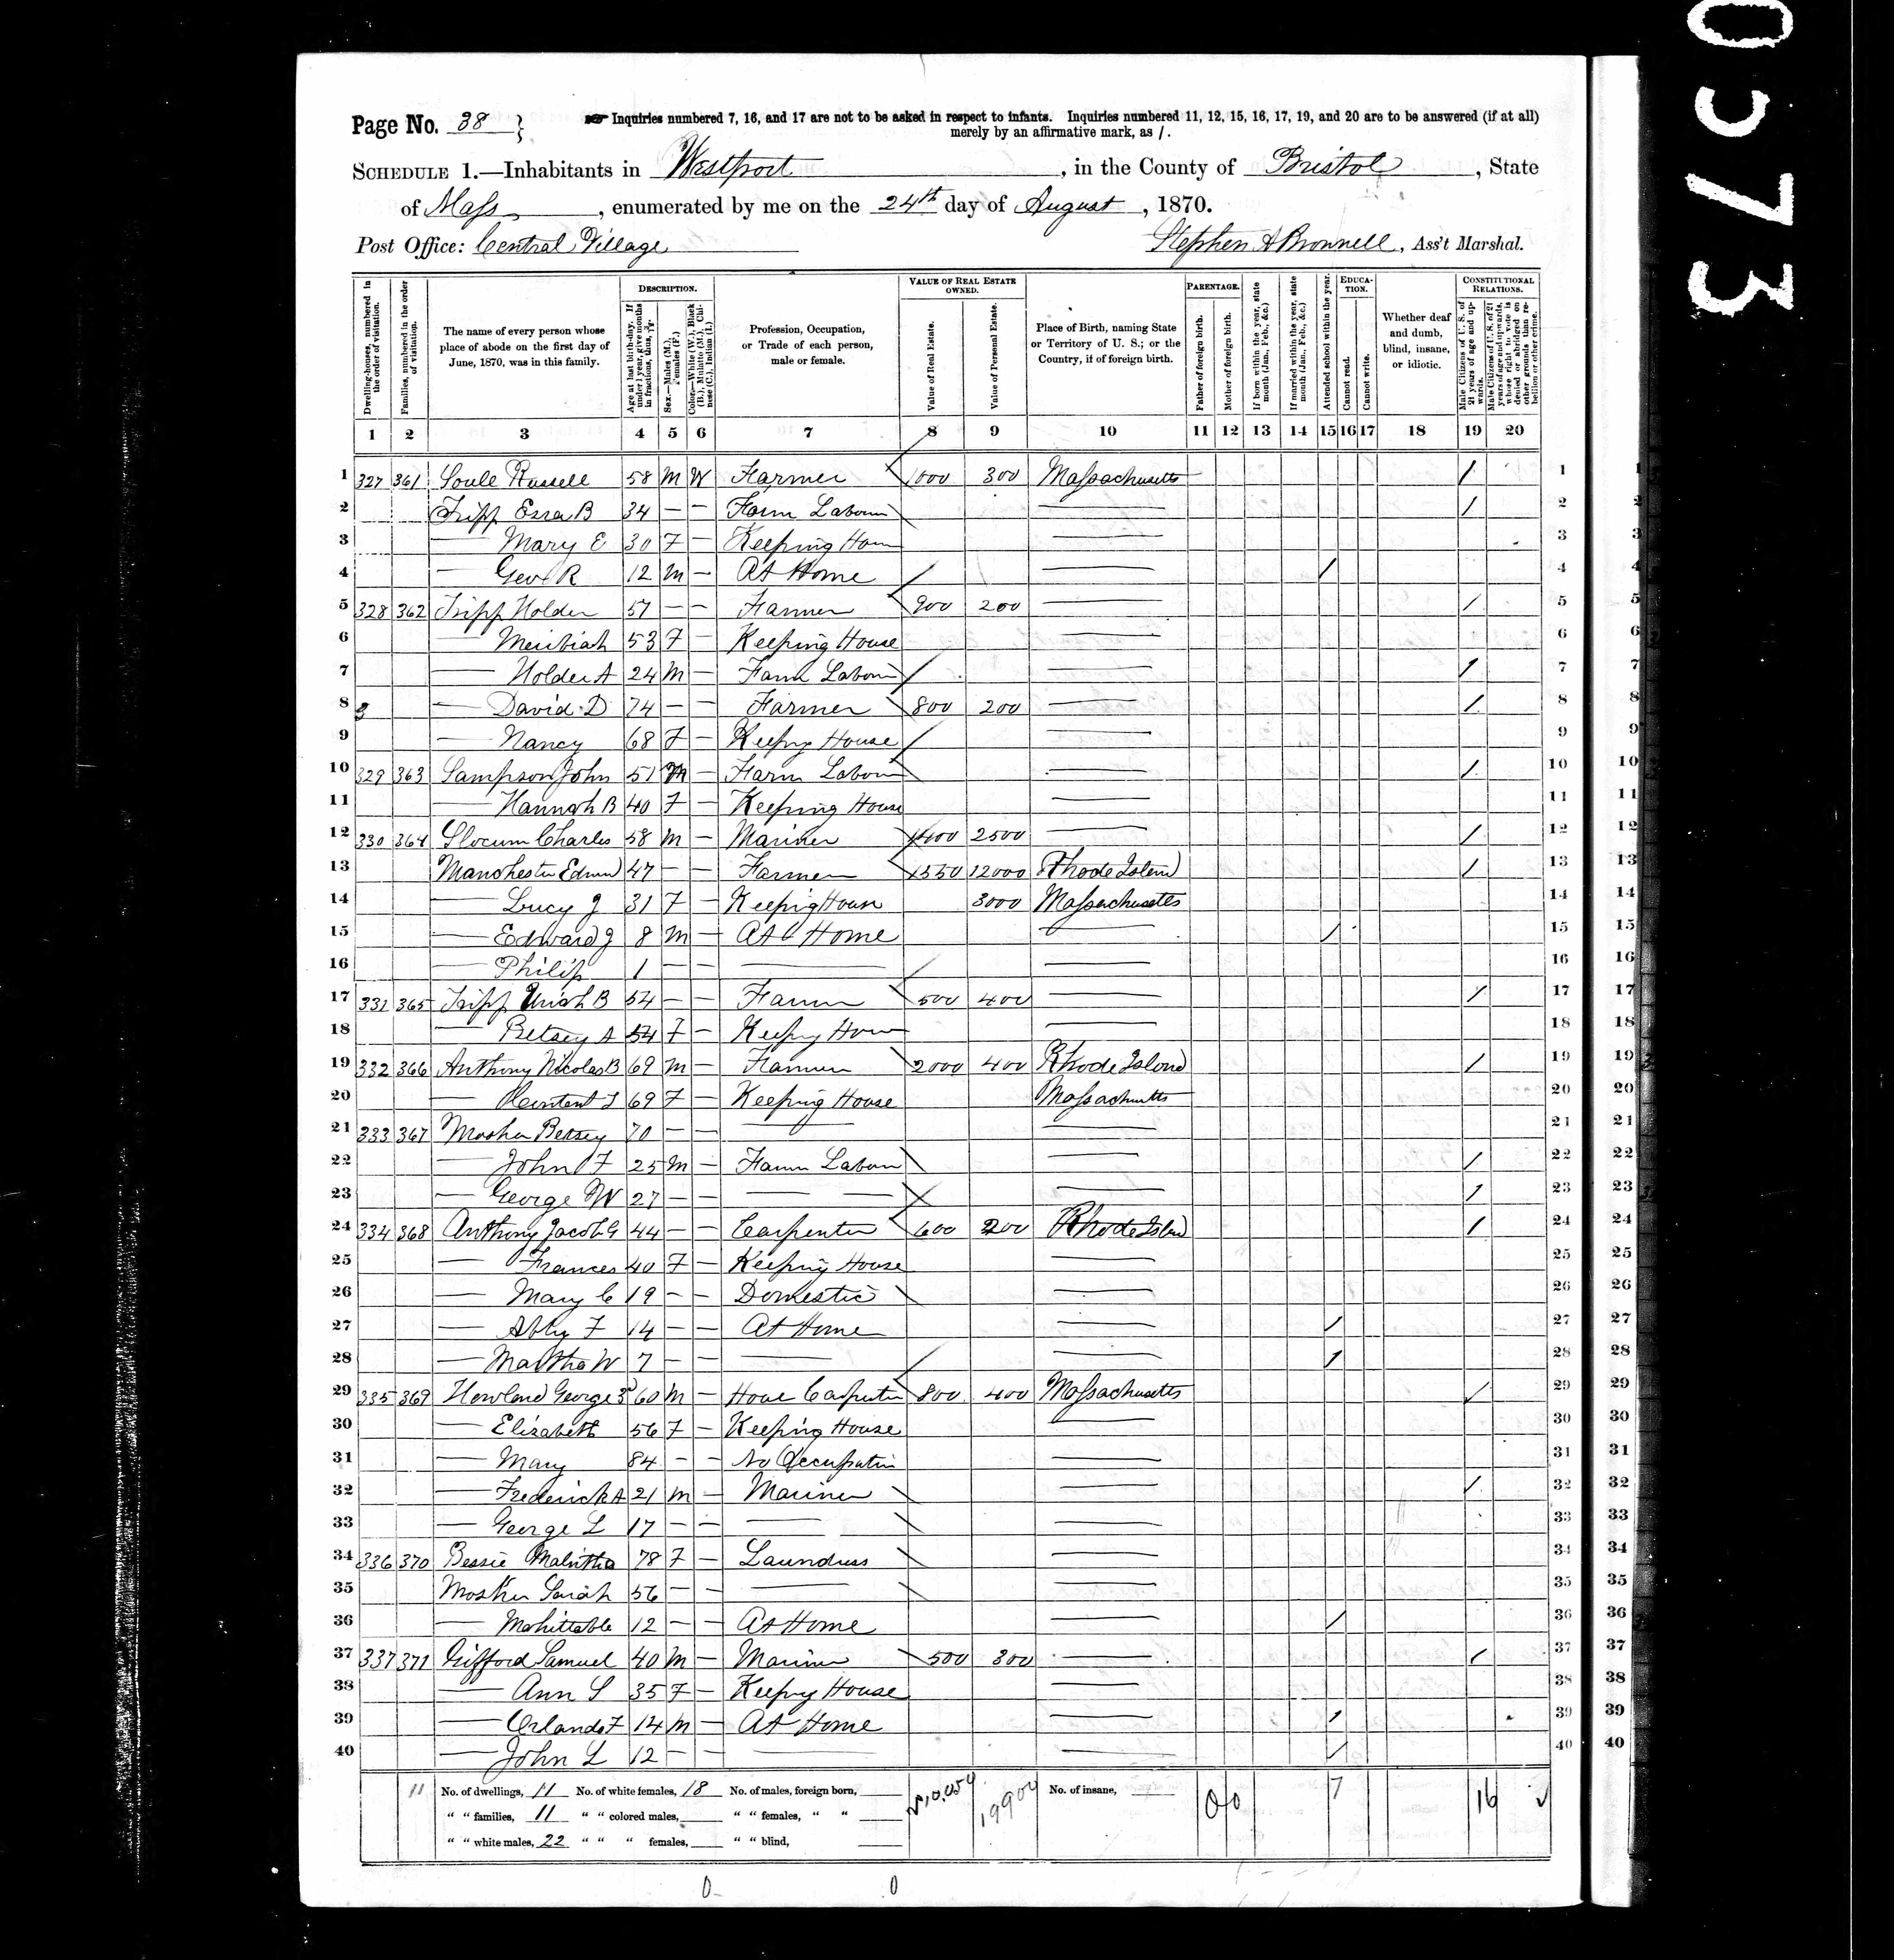 0573
Page No. 38 }
☞ Inquiries numbered 7, 16, and 17 are not to be asked in respect to infants. Inquiries numbered 11, 12, 15, 16, 17, 19, and 20 are to be answered (if at all)
merely by an affirmative mark, as /.
SCHEDULE 1.—Inhabitants in Westport, in the County of Bristol, State
of Mass, enumerated by me on the 24th day of August, 1870.
Post Office: Central Village Stephen A Brownell, Ass't Marshal.
Dwelling-houses, numbered in the order of visitation.
Families, numbered in the order of visitation.
The name of every person whose place of abode on the first day of June, 1870, was in this family.
DESCRIPTION.
Age at last birth-day. If under 1 year, give months in fractions, thus, 3/12.
Sex.—Males (M.), Females (F.)
Color.—White (W.), Black (B.), Mulatto (M.), Chinese (C.), Indian (I.)
Profession, Occupation, or Trade of each person, male or female.
VALUE OF REAL ESTATE OWNED.
Value of Real Estate.
Value of Personal Estate.
Place of Birth, naming State or Territory of U. S.; or the Country, if of foreign birth.
PARENTAGE.
Father of foreign birth.
Mother of foreign birth.
If born within the year, state month (Jan., Feb., &c.)
If married within the year, state month (Jan., Feb., &c.)
Attended school within the year.
EDUCATION.
Cannot read.
Cannot write.
Whether deaf and dumb, blind, insane, or idiotic.
CONSTITUTIONAL RELATIONS.
Male Citizens of U. S. of 21 years of age and upwards.
Male Citizens of U. S. of 21 years of age and upwards, whose right to vote is denied or abridged on other grounds than rebellion or other crime.
1 2 3 4 5 6 7 8 9 10 11 12 13 14 15 16 17 18 19 20
1 327 361 Soule Russell 58 M W Farmer 1000 300 Massachusetts / 1
2 Tripp Ezra B 34 — — Farm Labour — / 2
3 — Mary E 30 F — Keeping Hous — 3
4 — Geo R 12 M — At Home — / 4
5 328 362 Tripp Holder 57 — — Farmer 900 200 — / 5
6 — Meribiah 53 F — Keeping House — 6
7 — Holder A 24 M — Farm Labour — / 7
8 — David D 74 — — Farmer 800 200 — / 8
9 — Nancy 68 F — Keeping House — 9
10 329 363 Sampson John 51 M — Farm Labour — / 10
11 — Hannah B 40 F — Keeping House — 11
12 330 364 Slocum Charles 58 M — Mariner 1400 2500 — / 12
13 Manchester Edwd 47 — — Farmer 1550 12000 Rhode Island / 13
14 — Lucy J 31 F — Keeping House 3000 Massachusetts 14
15 — Edward J 8 M — At Home — / 15
16 — Philip 1 — — — — 16
17 331 365 Tripp Uriah B 54 — — Farmer 500 400 — / 17
18 — Betsey A 54 F — Keeping House — 18
19 332 366 Anthony Nicolas B 69 M — Farmer 2000 400 Rhode Island / 19
20 — 69 F — Keeping House Massachusetts 20
21 333 367 Mosher Betsey 70 — — — — 21
22 — John F 25 M — Farm Labour — / 22
23 — George W 27 — — — — — / 23
24 334 368 Anthony Jacob G 44 — — Carpenter 600 200 Rhode Island / 24
25 — Frances 40 F — Keeping House — 25
26 — Mary C 19 — — Domestic — 26
27 — Abby F 14 — — At Home — / 27
28 — Martha W 7 — — — — / 28
29 335 369 Howland George 3d 60 M — House Carpenter 800 400 Massachusetts / 29
30 — Elizabeth 56 F — Keeping House — 30
31 — Mary 84 — — No Occupation — 31
32 — Frederick A 21 M — Mariner — / 32
33 — George L 17 — — — — 33
34 336 370 Bessie 78 F — Laundress — 34
35 Mosher Sarah 56 — — — — 35
36 — Mehittable 12 — — At Home — / 36
37 337 371 Gifford Samuel 40 M — Mariner 500 300 — / 37
38 — Ann S 35 F — Keeping House — 38
39 — Orlando F 14 M — At Home — / 39
40 — John L 12 — — — — / 40
11 No. of dwellings, 11 No. of white females, 18 No. of males, foreign born, 10,050 19900 No. of insane, 0 0 7 16
" " families, 11 " " colored males, " " females, " "
" " white males, 22 " " " females, " " blind,
0 0